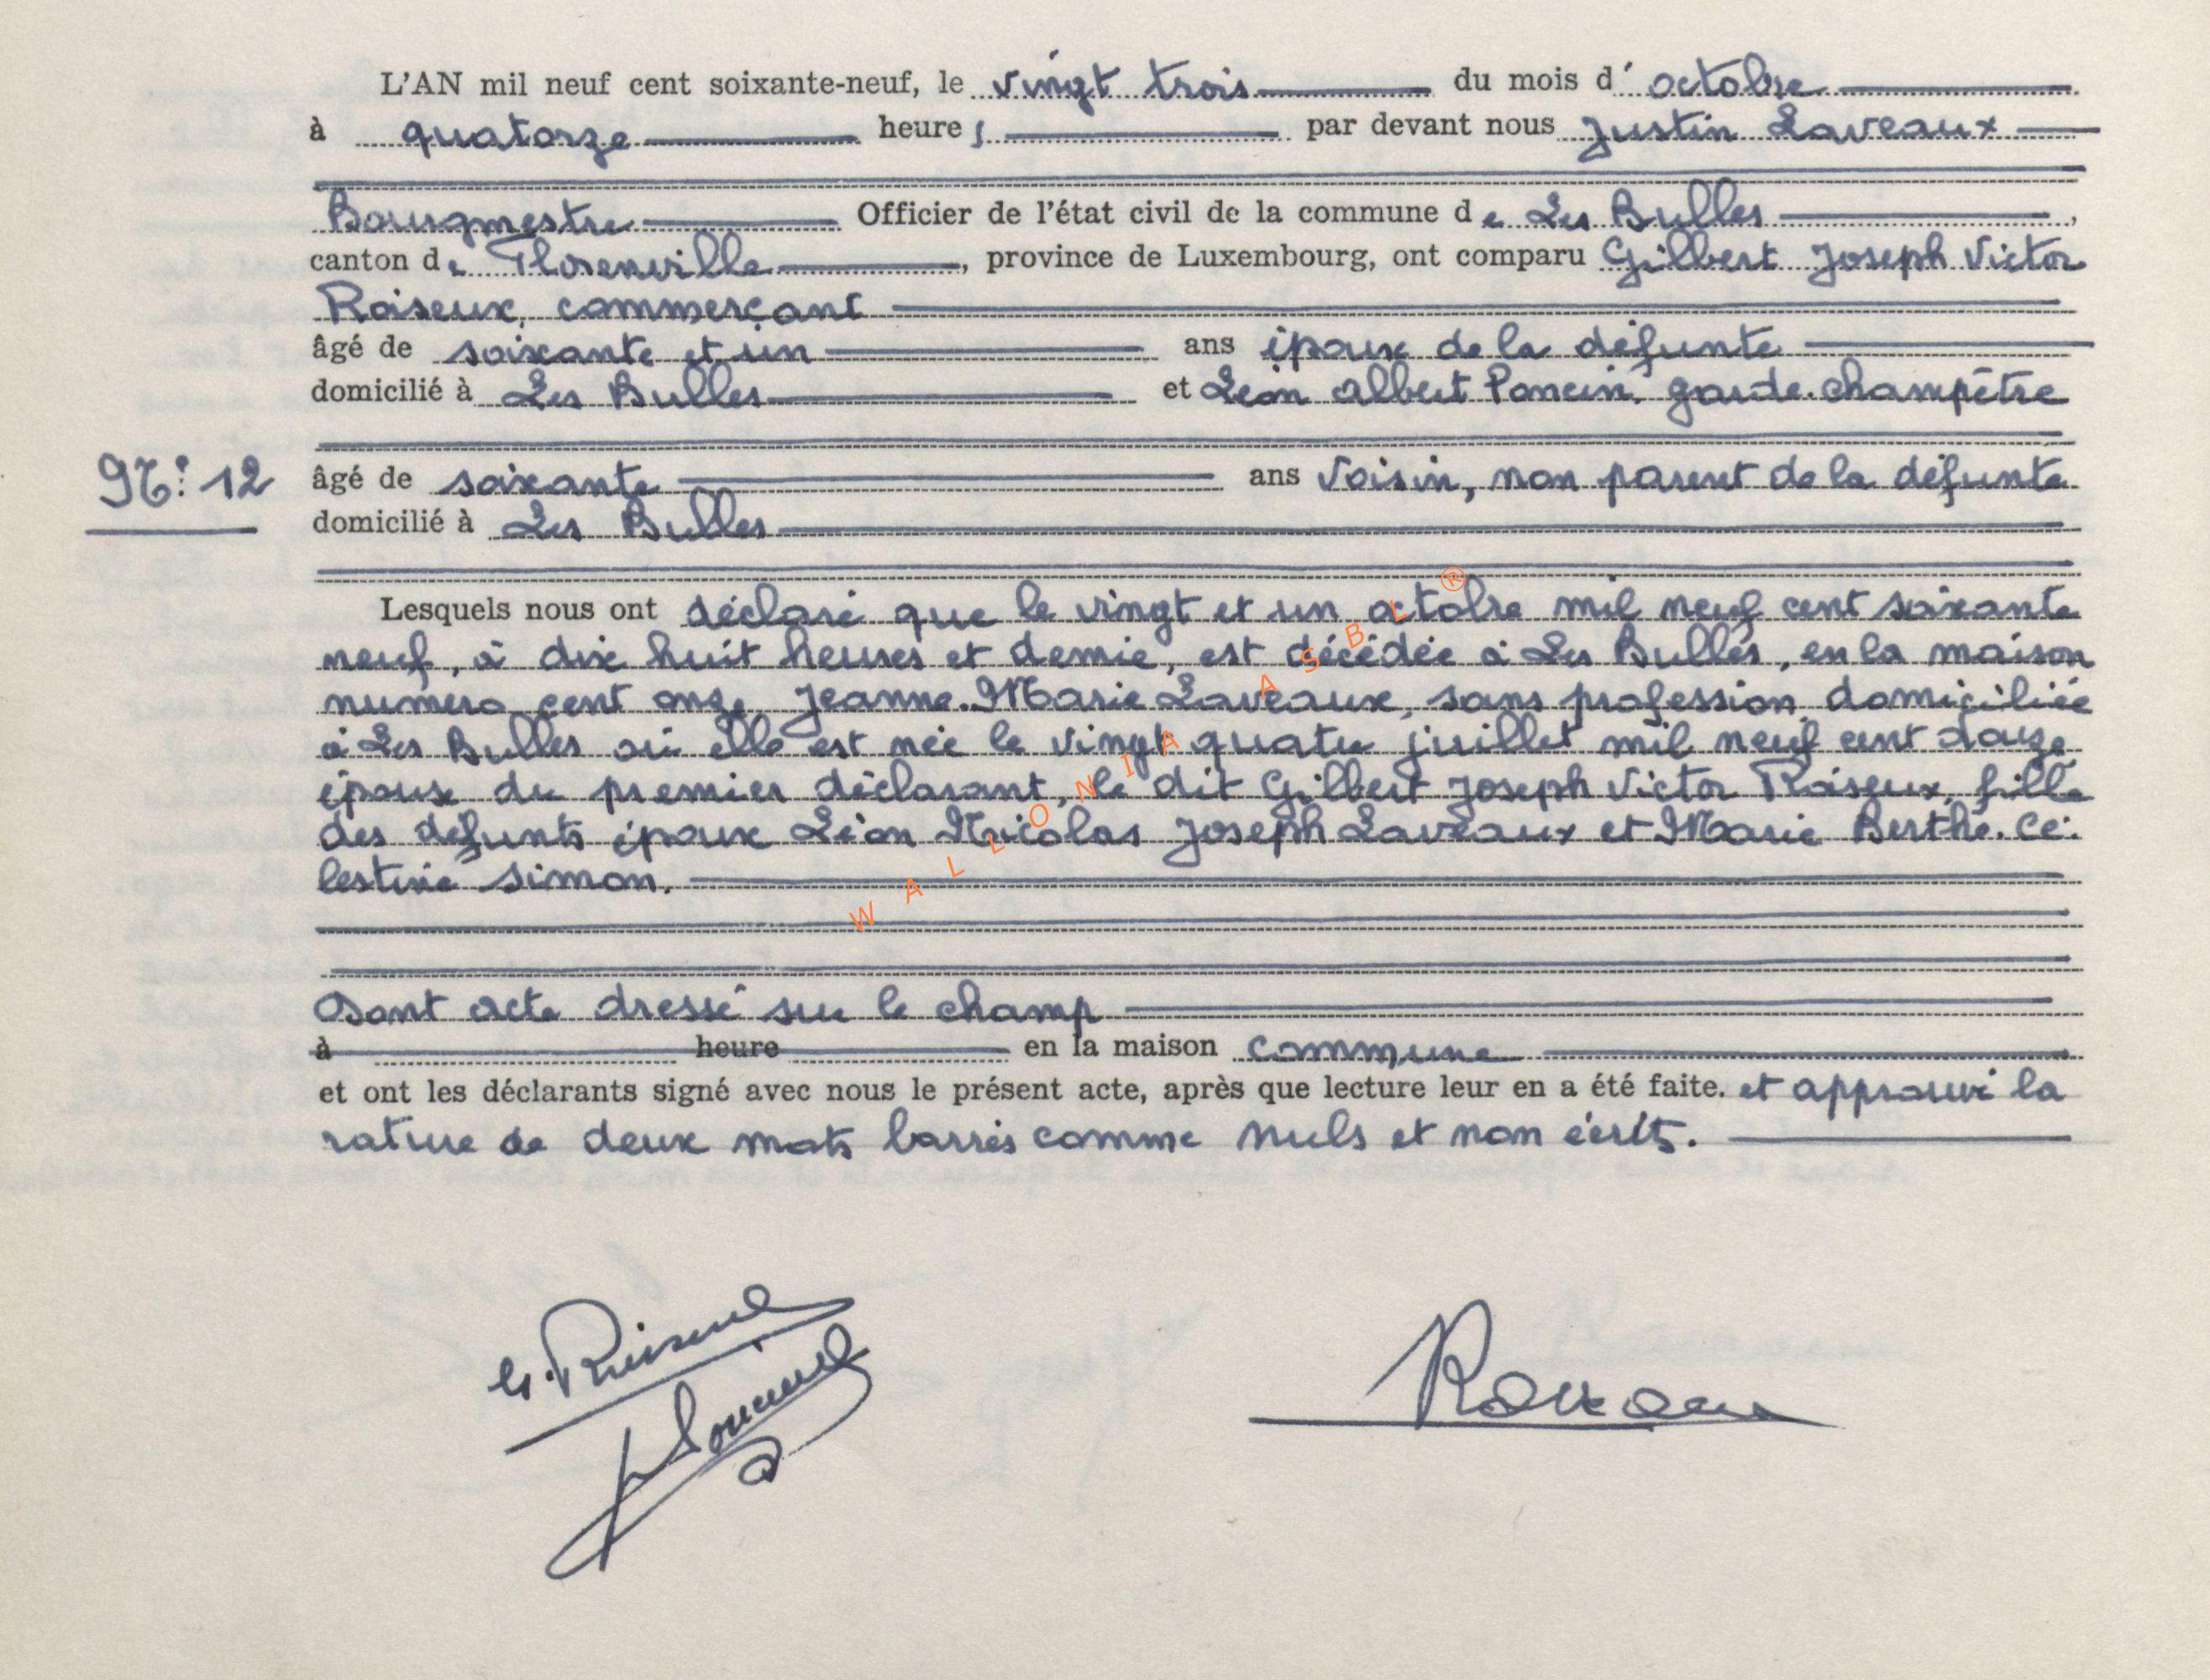 L'AN mil neuf cent soixante-neuf, le vingt trois du mois d' octobre
à quatorze heures par devant nous Justin Laveaux
Bourgmestre Officier de l'état civil de la commune de Les Bulles,
canton de Florenville, province de Luxembourg, ont comparu Gilbert Joseph Victor
Roiseux, commerçant
âgé de soixante et un ans époux de la défunte
domicilié à Les Bulles et Léon Albert Poncin, garde-champêtre
N° 12
âgé de soixante ans voisin, non parent de la défunte
domicilié à Les Bulles
Lesquels nous ont déclaré que le vingt et un octobre mil neuf cent soixante
neuf, à dix huit heures et demie, est décédée à Les Bulles, en la maison
numéro cent onze, Jeanne-Marie Laveaux, sans profession, domiciliée
à Les Bulles où elle est née le vingt quatre juillet mil neuf cent douze
épouse du premier déclarant, le dit Gilbert Joseph Victor Roiseux, fille
des défunts époux Léon Nicolas Joseph Laveaux et Marie Berthe. Cé-
lestine Simon.
WALLONIA ASBL ®
Dont acte dressé sur le champ
à heure en la maison commune
et ont les déclarants signé avec nous le présent acte, après que lecture leur en a été faite. et approuvé la
rature de deux mots barrés comme nuls et non écrits.
G. Roiseux